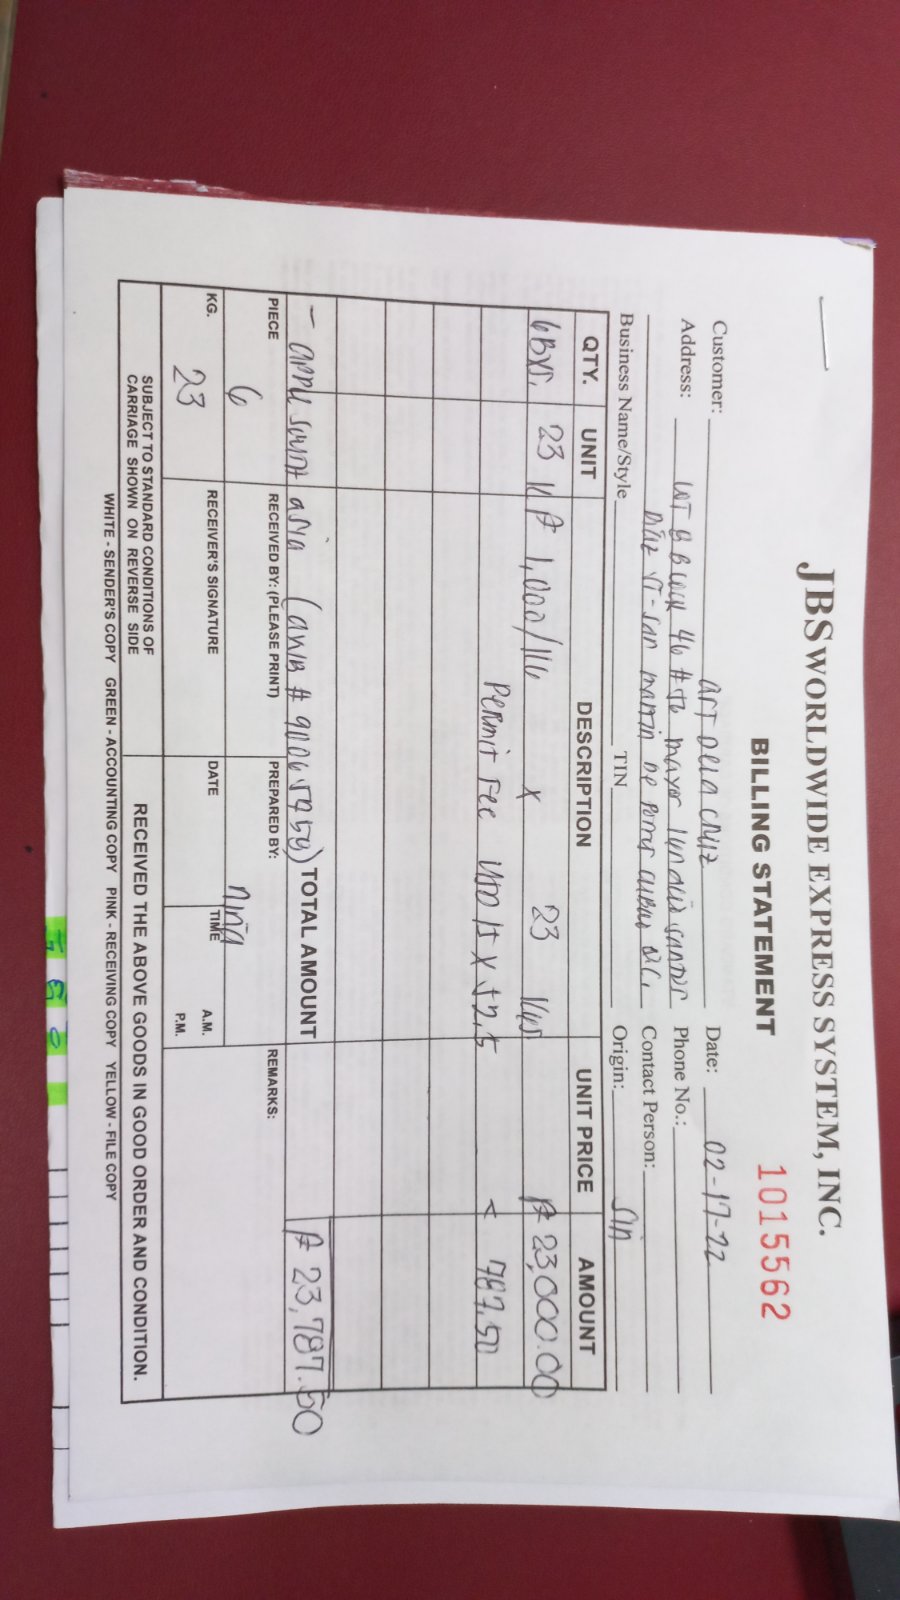 JBS WORLDWIDE EXPRESS SYSTEM, INC.
BILLING STATEMENT
1015562
Customer: art dela cruz Date: 02-17-22
Address: LOT 8 Block 46 # mayor santos Phone No.:
st. san martin de porres cubao Q.C. Contact Person:
Business Name/Style TIN Origin: SIN
QTY. UNIT DESCRIPTION UNIT PRICE AMOUNT
6 BXS. 23 K ₱ 1,000/ x 23 kgs ₱ 23,000.00
Permit Fee USD 15 x 52.5 787.50
- asia (AWB # TOTAL AMOUNT ₱ 23,787.50
PIECE 6 RECEIVED BY: (PLEASE PRINT) PREPARED BY: Niña REMARKS:
KG. 23 RECEIVER'S SIGNATURE DATE TIME A.M. P.M.
SUBJECT TO STANDARD CONDITIONS OF
CARRIAGE SHOWN ON REVERSE SIDE
RECEIVED THE ABOVE GOODS IN GOOD ORDER AND CONDITION.
WHITE - SENDER'S COPY GREEN - ACCOUNTING COPY PINK - RECEIVING COPY YELLOW - FILE COPY